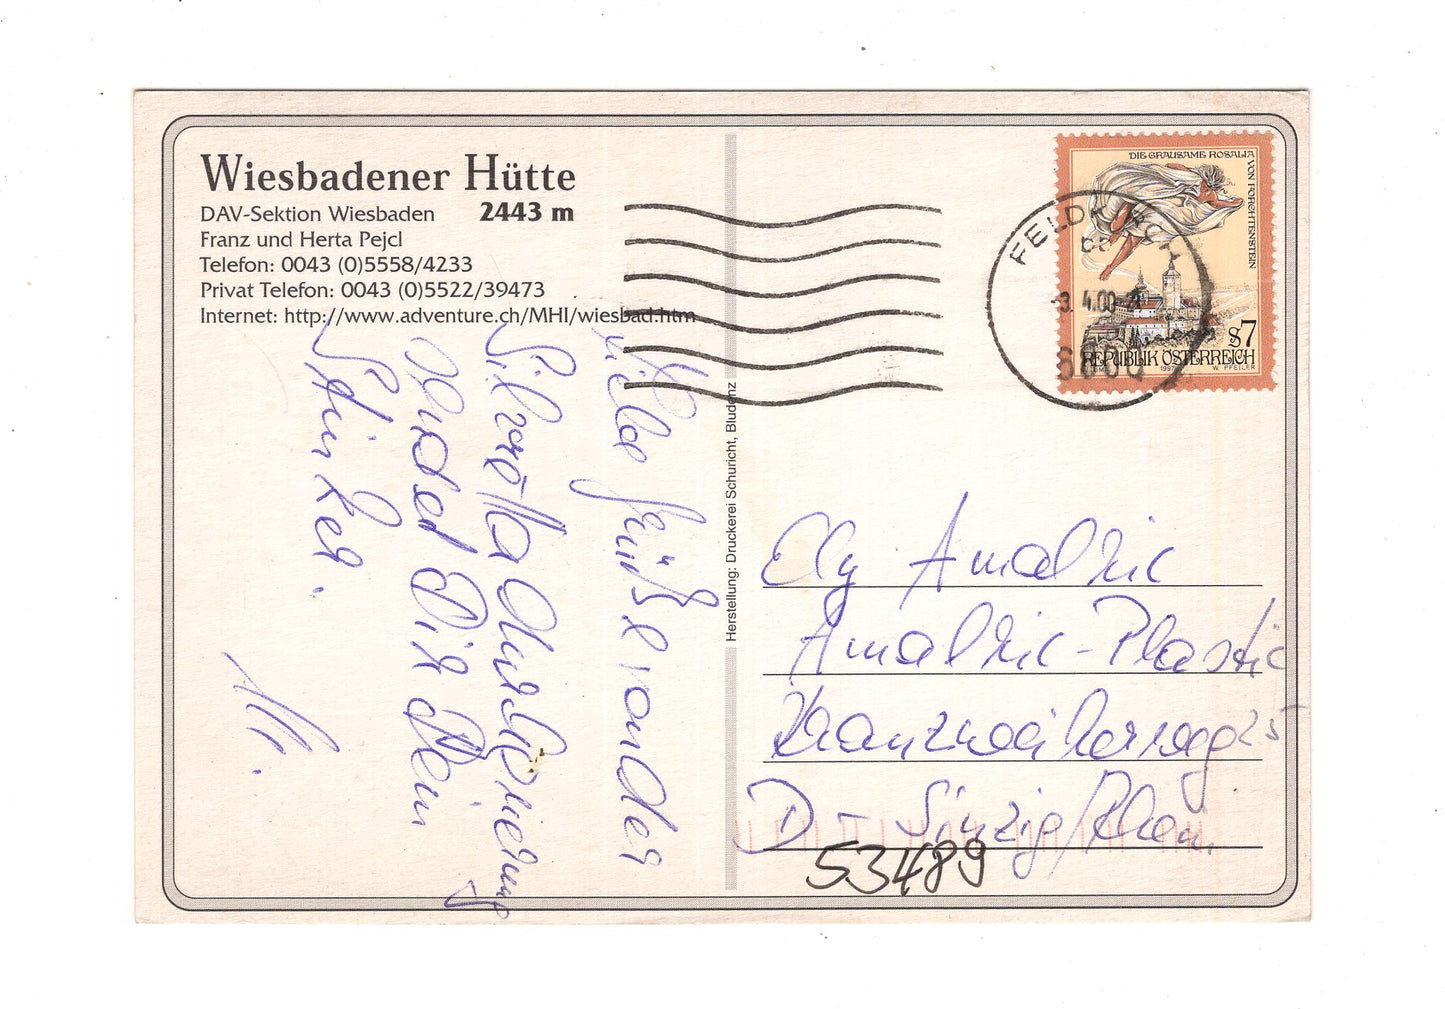 Wiesbadener Hütte
DAV-Sektion Wiesbaden 2443 m
Franz und Herta Pejcl
Telefon: 0043 (0)5558/4233
Privat Telefon: 0043 (0)5522/39473
Internet: http://www.adventure.ch/MHI/wiesbad.htm
Herstellung: Druckerei Schuricht, Bludenz
DIE GRAUSAME ROSALIA
VON FORCHTENSTEIN
S7
REPUBLIK ÖSTERREICH
1997 W. PFEILER
FELDKIRCH
3. 4.00
6800
Liebe Grüße von der
Silvretta
sendet Dir Dein
Günter.
Elly
D - Sinzig/Rhein
53489